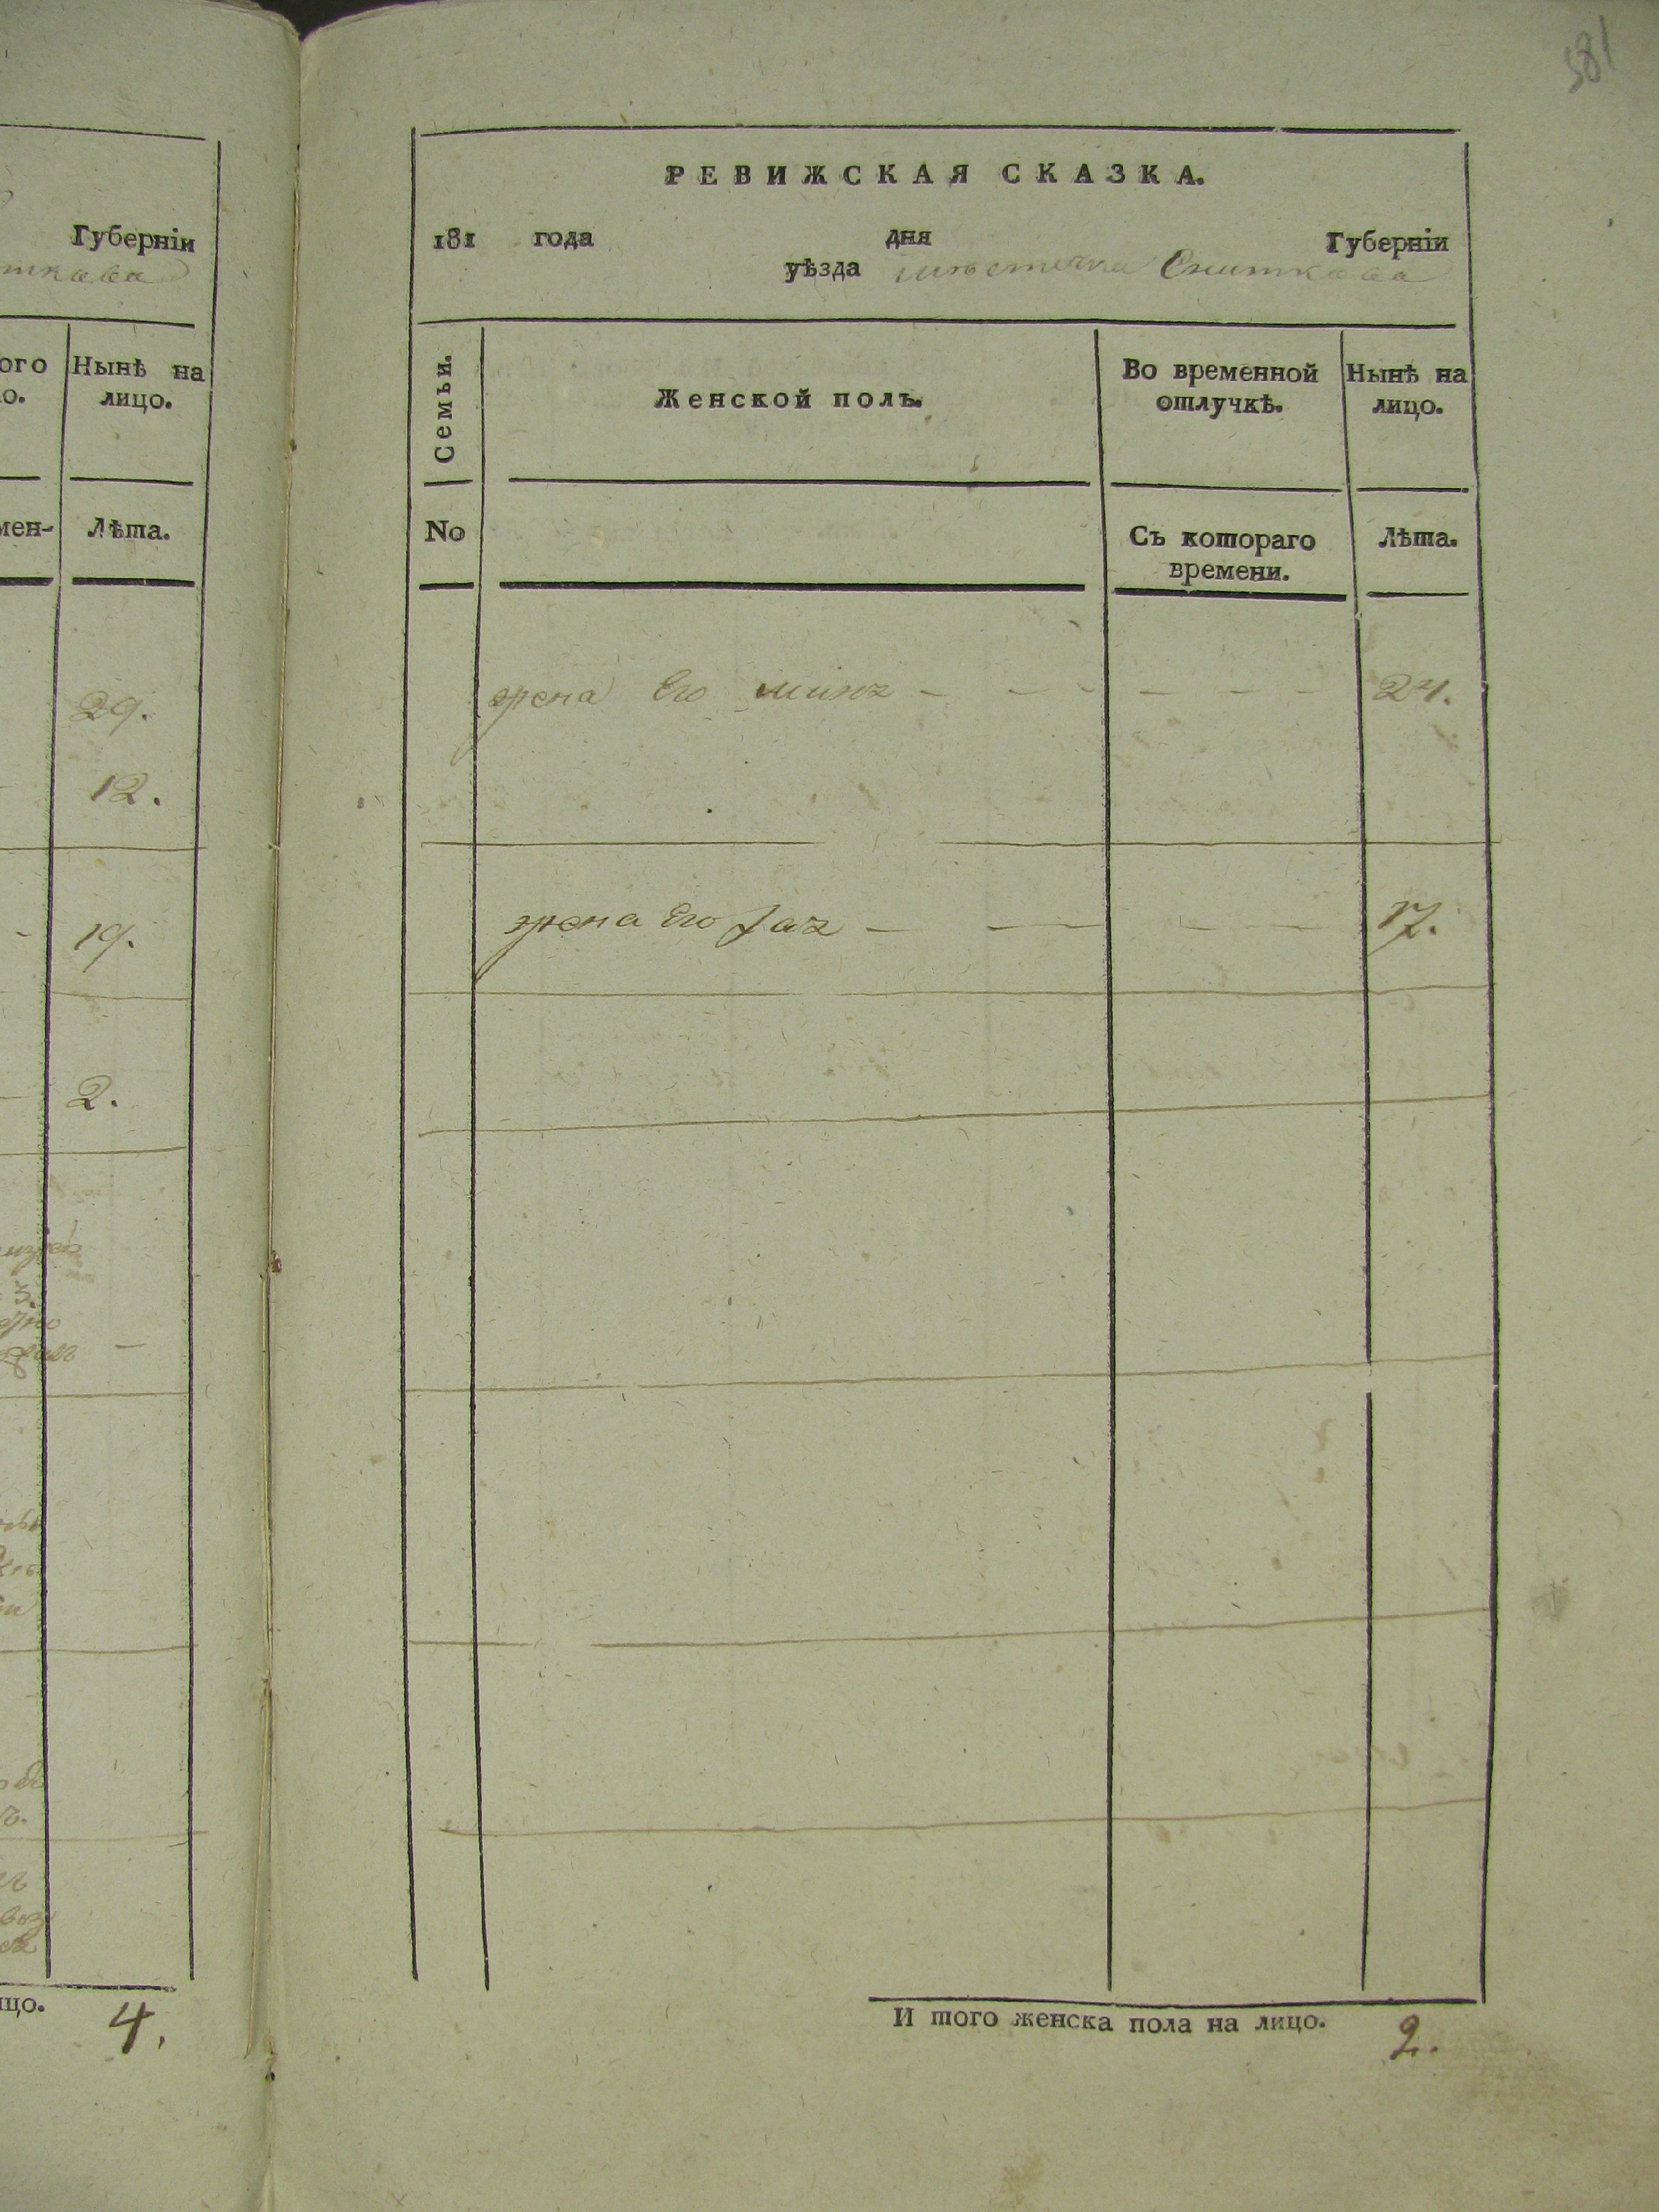 Губерніи
ткова
ого
Нынѣ на
о.
лицо.
мен-
Лѣта.
29.
12.
19.
2.
3.
цо.
4.
581
РЕВИЖСКАЯ СКАЗКА.
181 года дня Губерніи
уѣзда мѣстечка Сниткова
Семьи.
Женской полъ.
Во временной
отлучкѣ.
Нынѣ на
лицо.
No
Съ котораго
времени.
Лѣта.
жена Его — — — — — — 24.
жена Его — — — — — 17.
И того женска пола на лицо. 2.